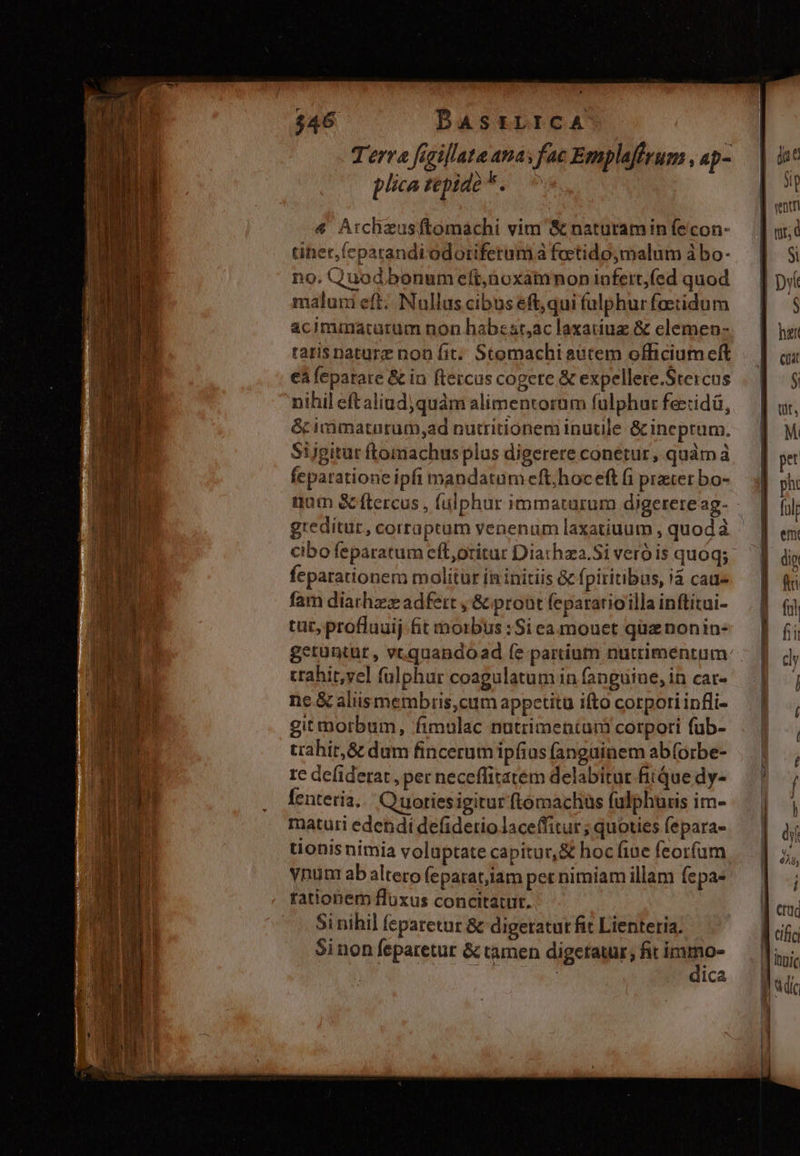 346 BASILICA
Terræ ſigillatæ ana, fac Emplaſtrum, ap-
plica tepidè *.
* Archæus ſtomachi vim & naturam in ſe con-
tinet, ſeparandi odoriferum à fœtido, malum à bo-
no. Quod bonum eſt, noxam non infert, ſed quod
malum eſt. Nullus cibus eſt, qui ſulphur fœtidum
ac immaturum non habeat, ac laxatiuæ & elemen-
taris naturæ non ſit. Stomachi autem officium eſt
ea ſeparare & in ſtercus cogere & expellere. Stercus
nihil eſt aliud, quàm alimentorum ſulphur fœtidū,
& immaturum, ad nutritionem inutile & ineptum.
Si igitur ſtomachus plus digerere conetur, quàm à
ſeparatione ipſi mandatum eſt, hoc eſt ſi præter bo-
num & ſtercus, ſulphur immaturum digerere ag-
greditur, corruptum venenum laxatiuum, quod à
cibo ſeparatum eſt, oritur Diarhæa. Si verò is quoq;
ſeparationem molitur in initiis & ſpiritibus, iā cau-
ſam diarhææ adfert, & prout ſeparatio illa inſtitui-
tur, profluuij fit morbus: Si ea mouet quæ non in-
geruntur, vt quando ad ſe partium nutrimentum
trahit, vel ſulphur coagulatum in ſanguine, in car-
ne & aliis membris, cum appetitu iſto corpori infli-
git morbum, ſimulac nutrimentum corpori ſub-
trahit, & dum ſincerum ipſius ſanguinem abſorbe-
re deſiderat, per neceſſitatem delabitur fitque dy-
ſenteria. Quoties igitur ſtomachus ſulphuris im-
maturi edendi deſiderio laceſſitur; quoties ſepara-
tionis nimia voluptate capitur, & hoc ſiue ſeorſum
vnum ab altero ſeparat, iam per nimiam illam ſepa-
rationem fluxus concitatur.
Si nihil ſeparetur & digeratur fit Lienteria.
Si non ſeparetur & tamen digeratur, fit immo-
dica